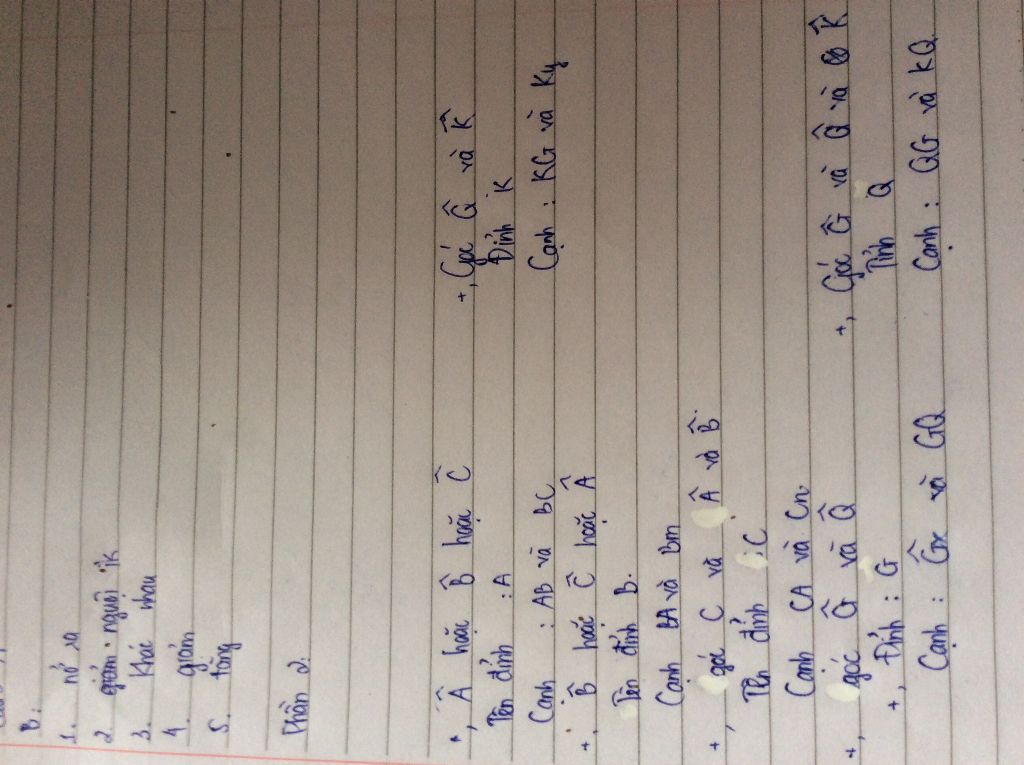 B:
1. nở ra
2. nguội ĩk
3. Khác nhau
4 giảm
5. tăng
Phần 2.
*, Â hoặc B̂ hoặc Ĉ
Tên đỉnh : A
Cạnh : AB và BC
+, B̂ hoặc Ĉ hoặc Â
Tên đỉnh B.
Cạnh BA và Bm
+, góc C và Â và B̂.
Tên đỉnh : C
Cạnh CA và Cn.
+, góc Ĝ và Q̂
+, Đỉnh : G
Cạnh : Gx và GQ
+, Góc Q̂ và K̂
Đỉnh K
Cạnh : KG và Ky
+, Góc Ĝ và Q̂ và K̂
Tỉnh Q
Cạnh : QG và KQ